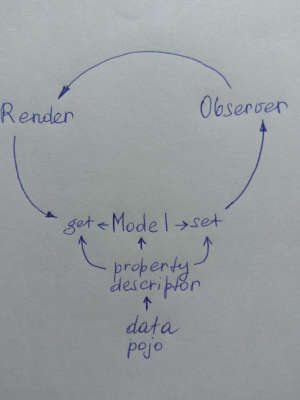 Observer
Render
get Model set
property
descriptor
data
pojo